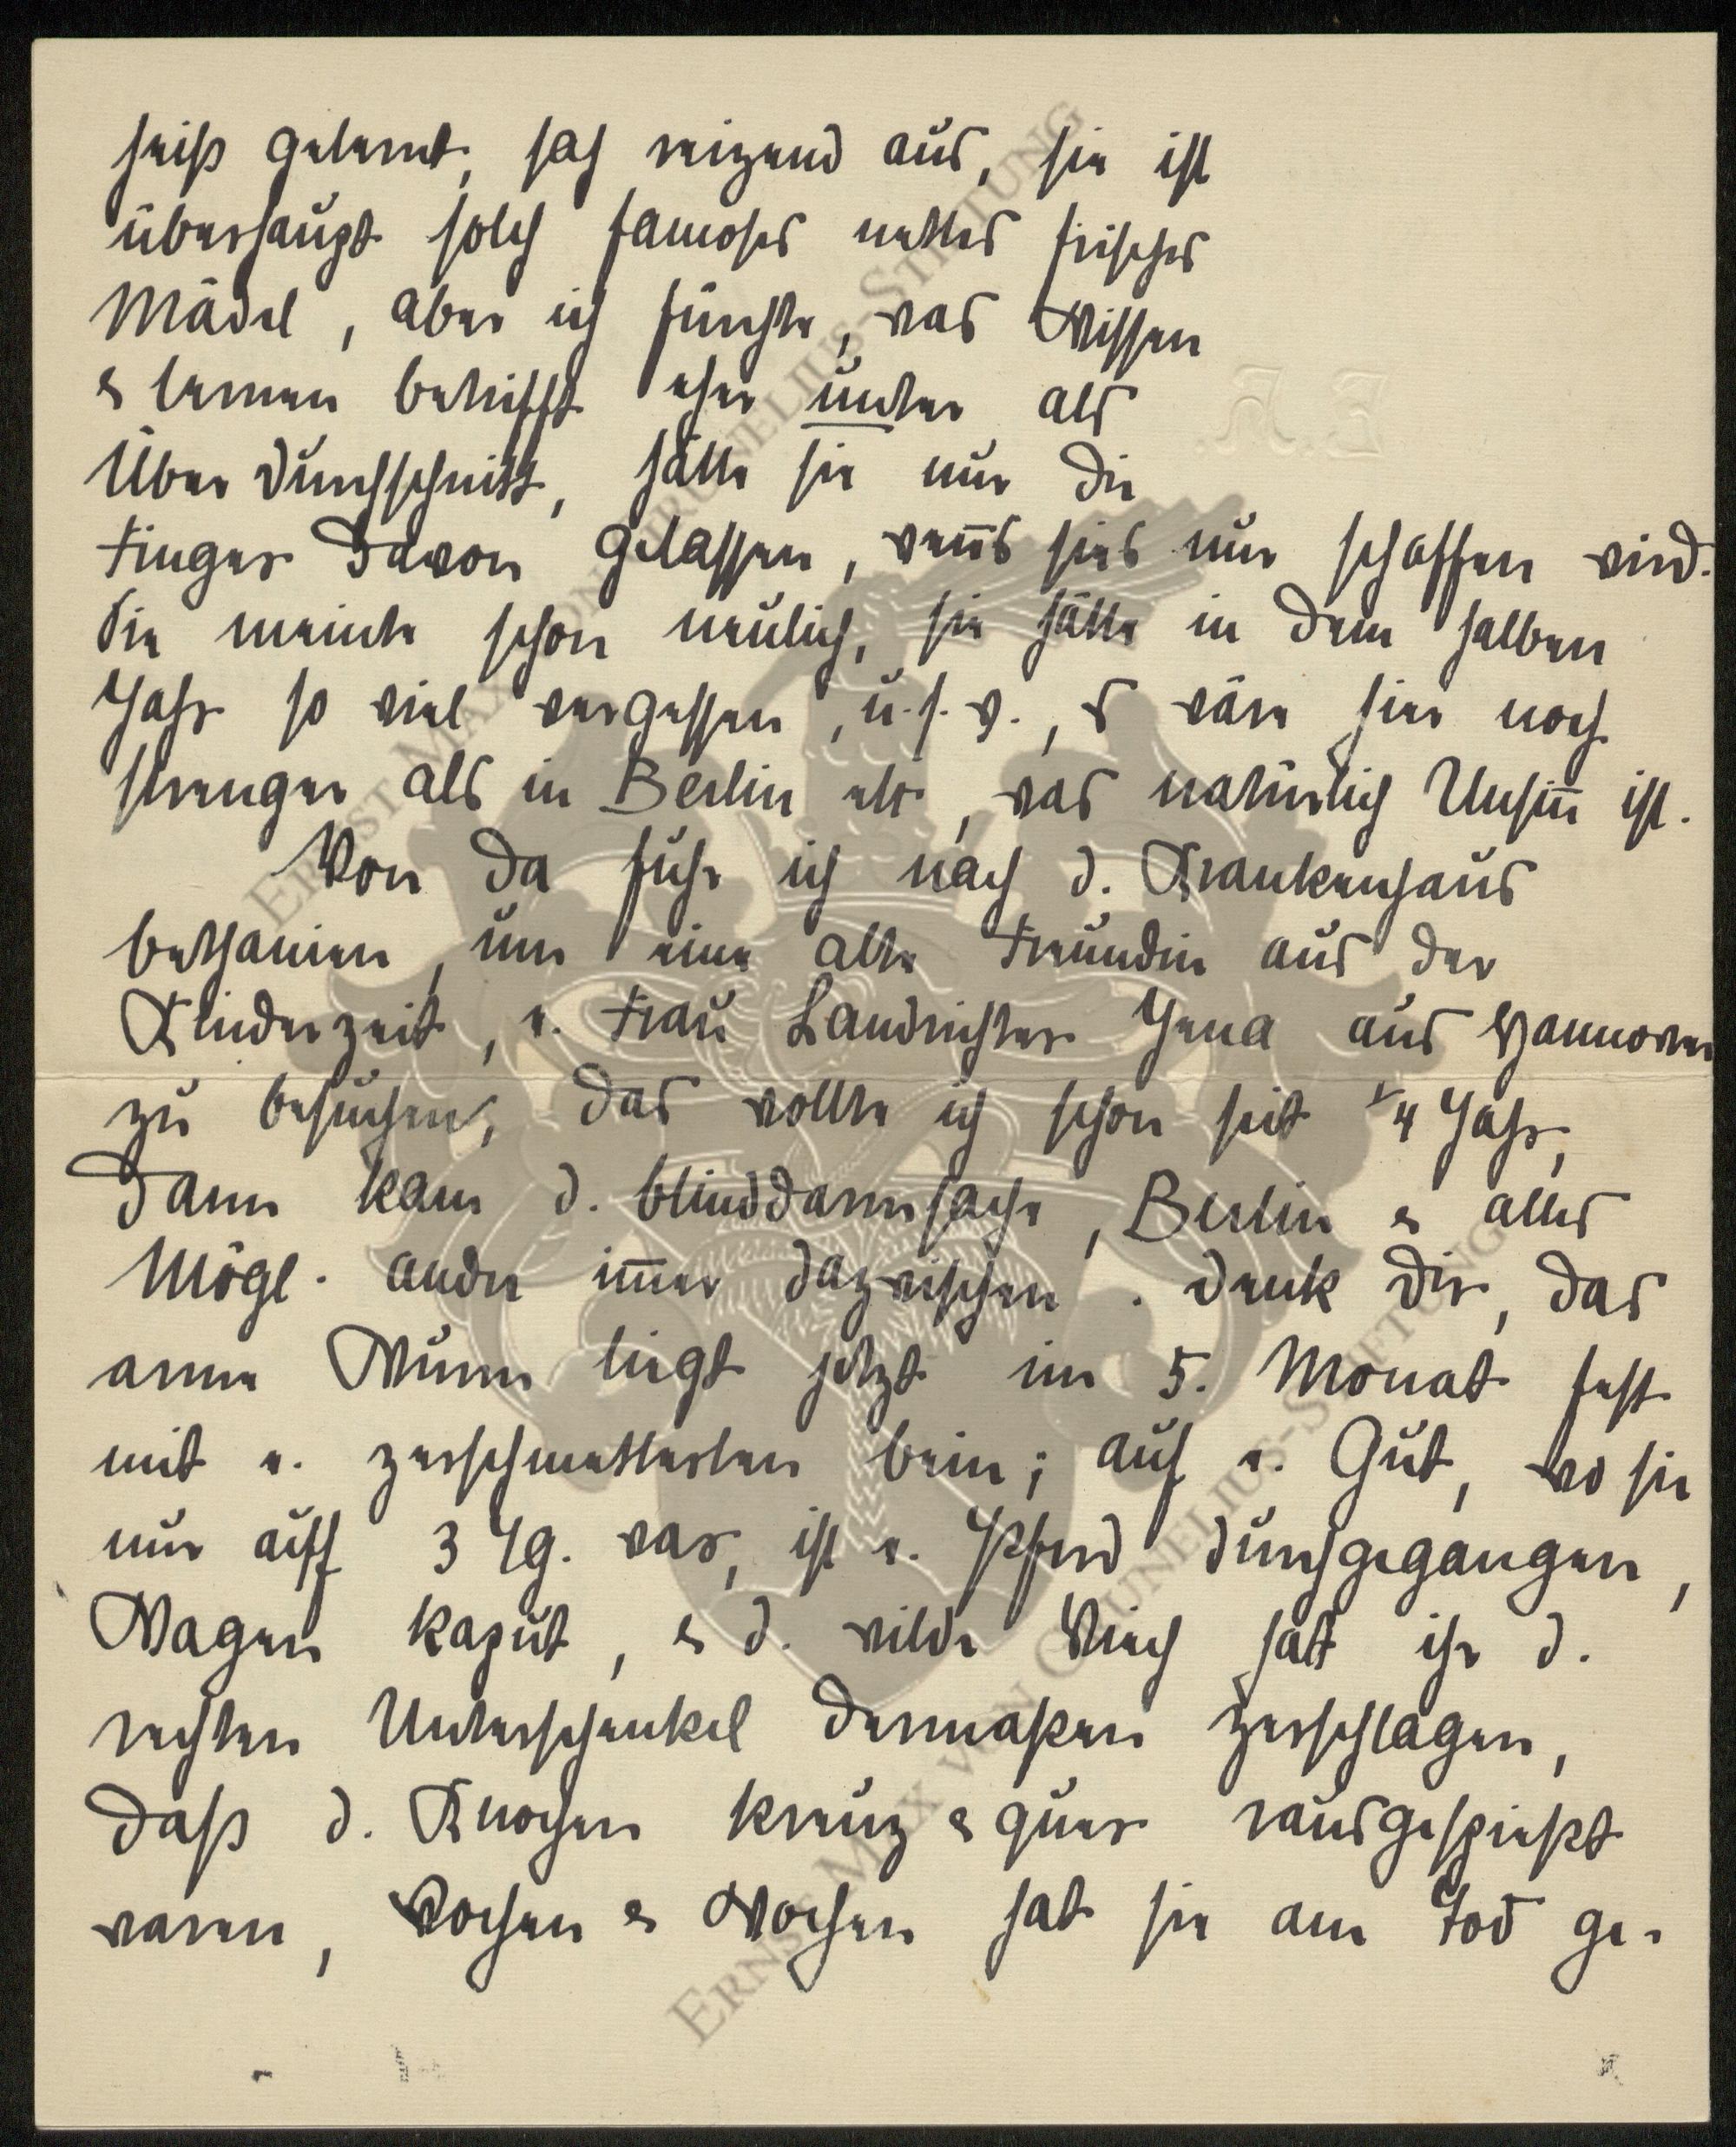 heiß gelernt, sah reizend aus, sie ist
überhaupt solch famoses nettes frisches
Mädel, aber ich fürchte, was Wissen
& lernen betrifft eher unter als
Über durchschnitt, hätte sie nur die
Finger davon gelassen, wen̅s sies nur schaffen wird.
Sie meinte schon neulich, sie hätte in dem halben
Jahr so viel vergessen, u.s.w., s wäre hier noch
strenger als in Berlin etc, was natürlich Unsin̅ ist.
Von da fuhr ich nach d. Krankenhaus
bethanien, um eine alte Freundin aus der
Kinderzeit, e. Frau Landrichter Jena aus Hannover
zu besuchen, das wollte ich schon seit 1/4 Jahr,
dann kam d. blinddarmsache, Berlin & alles
Mögl. andre im̅er dazwischen. denk dir, das
arme Wurm liegt jetzt im 5. Monat fest
mit e. zerschmetterten bein; auf e. Gut, wo sie
nur auf 3 Tg. war, ist e. Pferd durchgegangen,
Wagen kaput, & d. wilde Viech hat ihr d.
rechten Unterschenkel dermaßen zerschlagen,
daß d. Knochen kreuz & quer rausgespießt
waren, Wochen & Wochen hat sie am Tod ge-
ERNST MAX VON GRUNELIUS-STIFTUNG
ERNST MAX VON GRUNELIUS-STIFTUNG